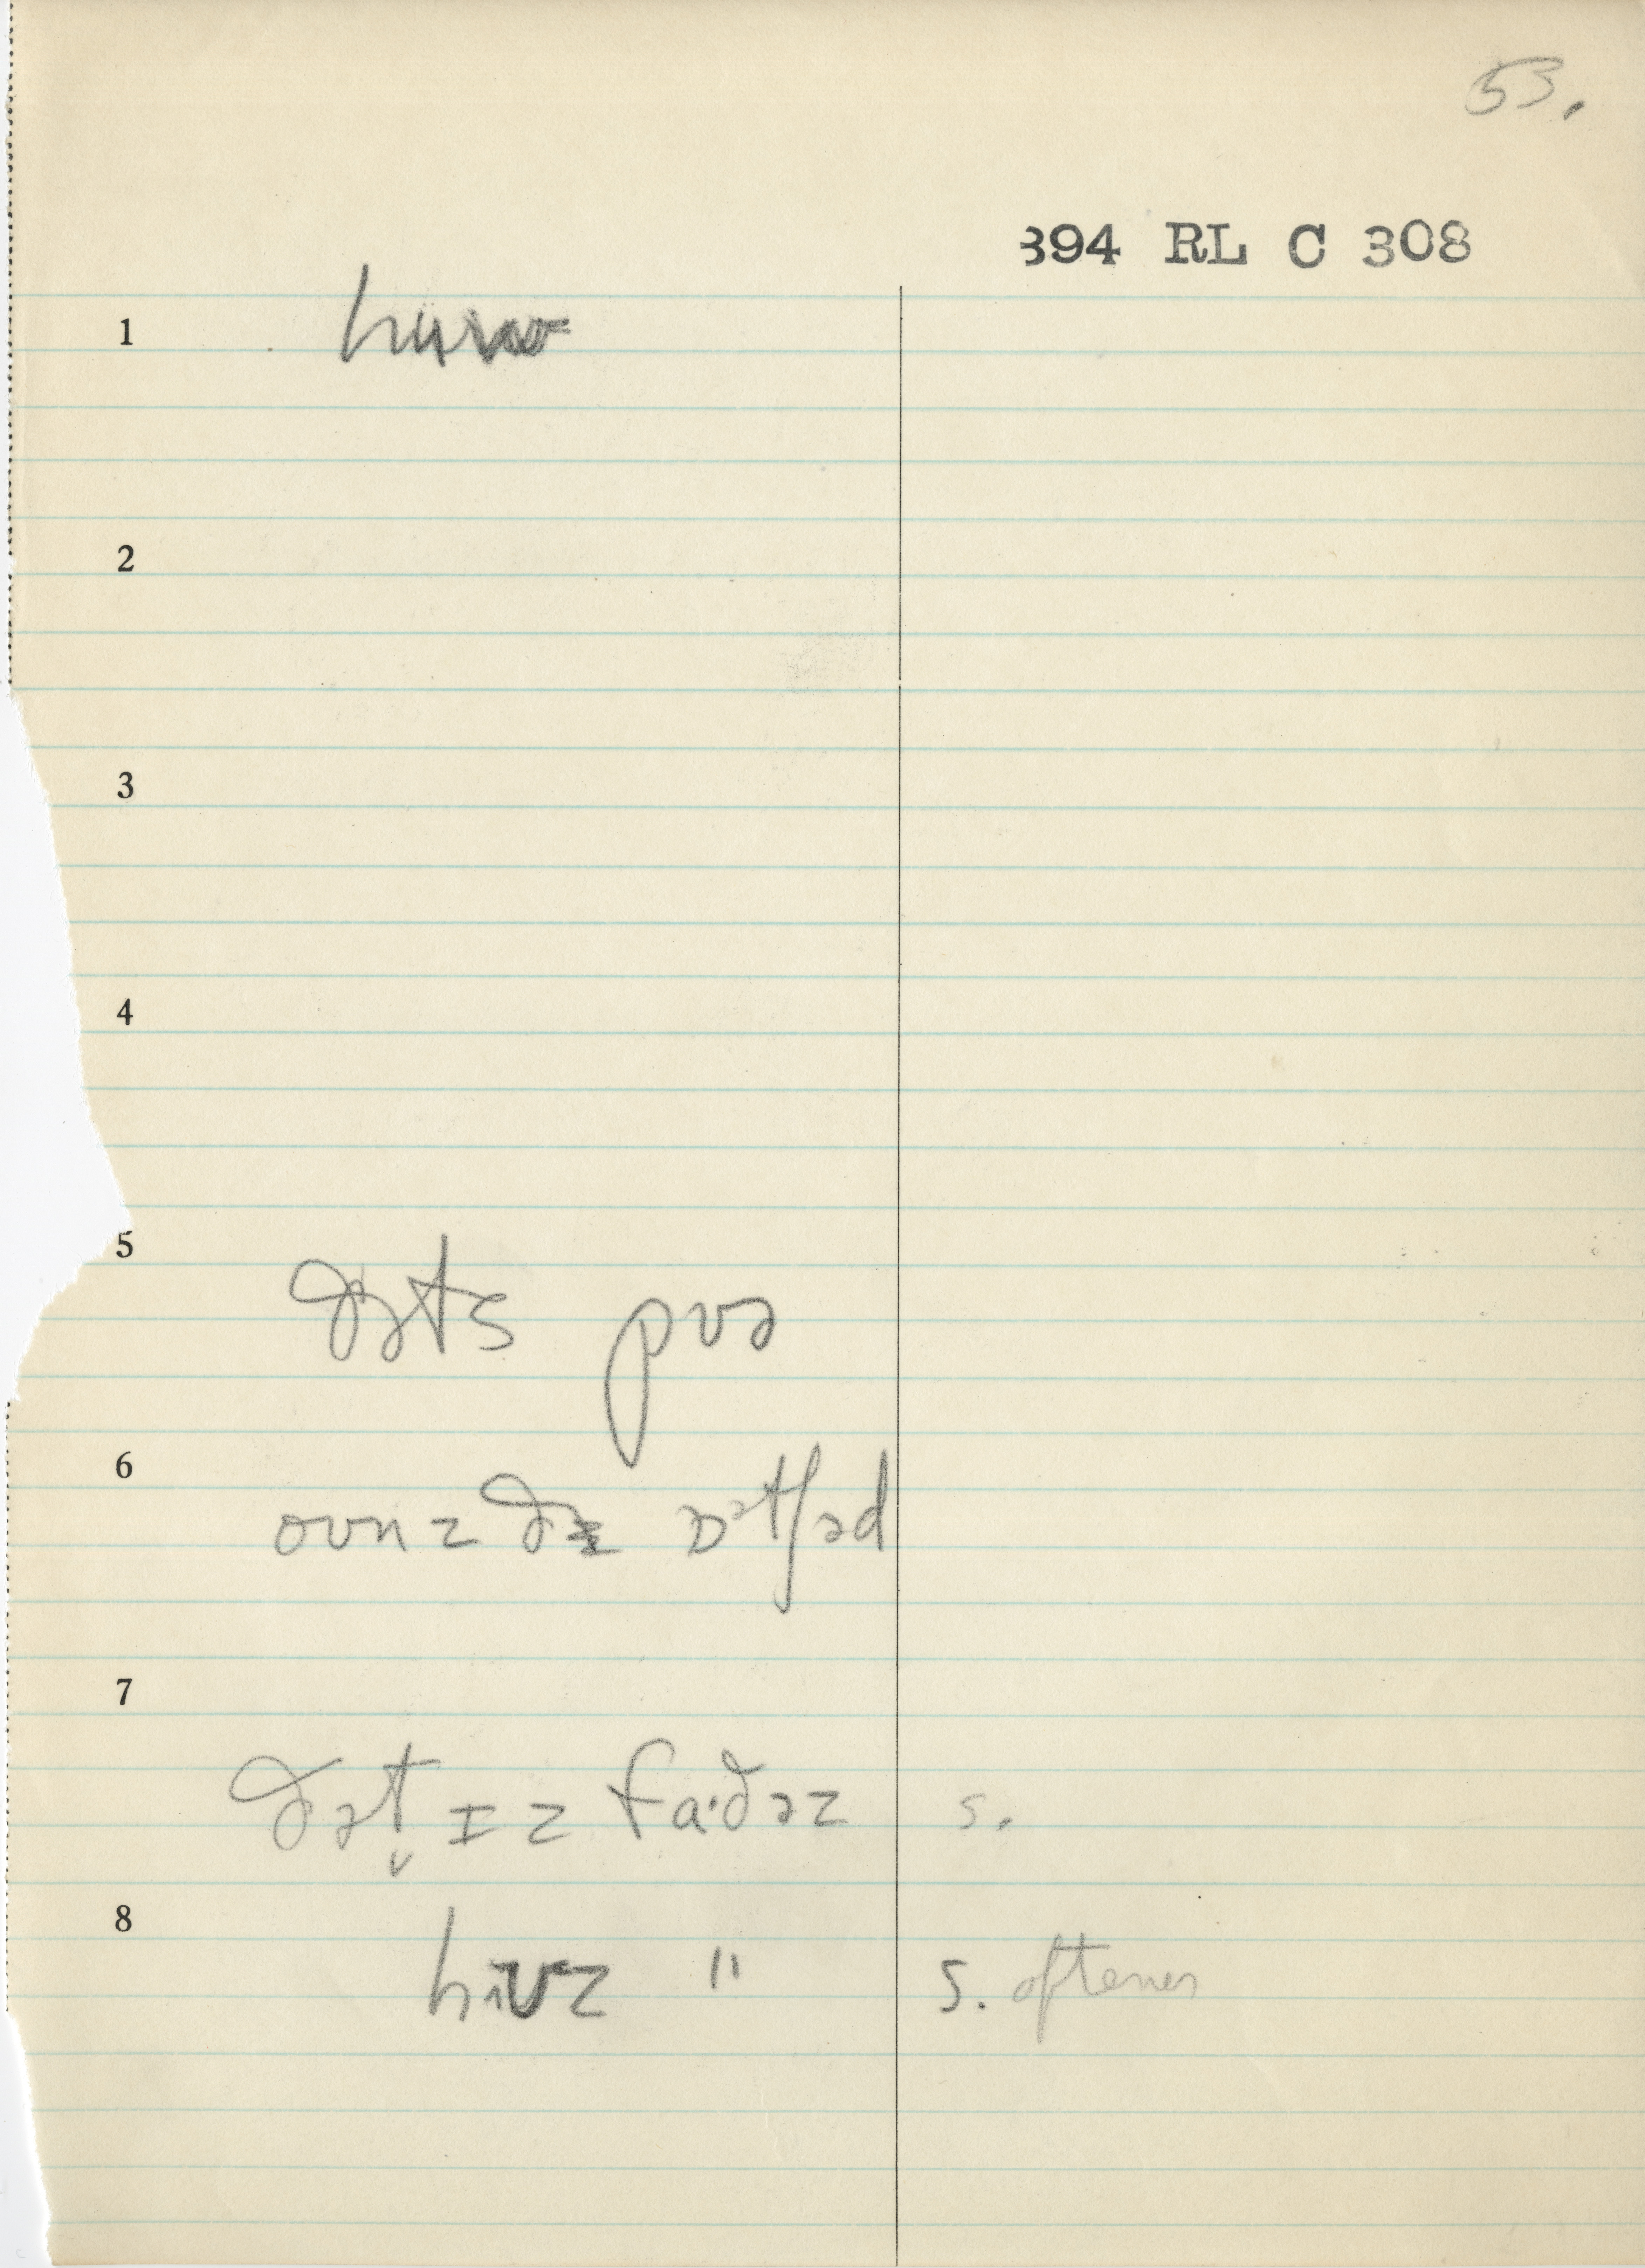 53.
394 RL C 308
1
2
3
4
5
ðəts pʊə
6
oʊnz ðə ɒətʃəd
7
ðət̬ ɪz fa·ðəz s.
8
" s. oftener